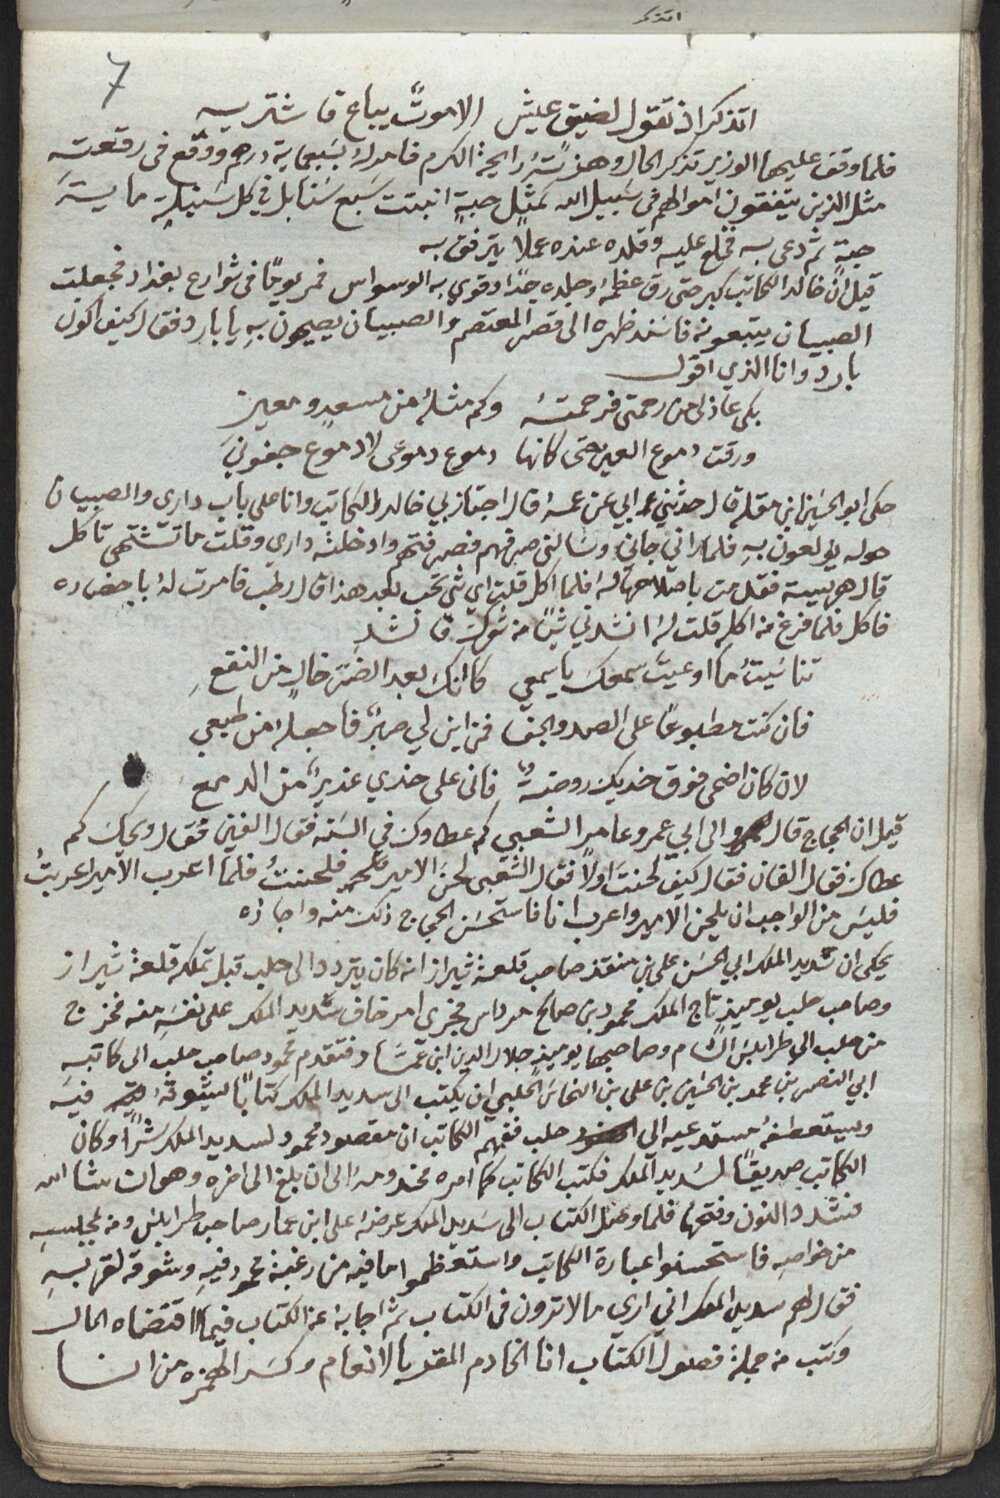 اتذكر
7
اتذكر اذ تقول لضيق عيش الا موتٌ يباع فاشتريه
فلما وقف عليها الوزير تذكر الحال وهزته رايحة الكرم فامر له بسبعماية درهم ووقع في رقعته
مثل الذين ينفقون اموالهم في سبيل الله كمثل حبةٍ انبتت سبع سنابل في كل سنبلةٍ ماية
حبةٍ ثم دعى به فخلع عليه وقلده عنده عملاً يترفق به
قيل انّ خالد الكاتب كبر حتى رق عظمه وجلده جدًا وقوي به الوسواس فمر يومًا في شوارع بغداد فجعلت
الصبيان يتبعونه فاسند ظهره الى قصر المعتصم والصبيان يصيحون بهِ يا بارد فقال كيف اكون
بارد وانا الذي اقول
بكى عاذلي من رحمتي فرحمتهُ وكم مثله من مسعدٍ ومعين
ورقت دموع العين حتى كانها دموع دموعي لا دموع جفوني
حكى ابو الحسين ابن مقله قال حدثني ابي عن عمه قال اجتاز بي خالد الكاتب وانا على باب داري والصبيان
حوله يولعون بهِ فلما راني جاني وسالني صرفهم فصرفتهم وادخلته داري وقلت ما تشتهي تاكل
قال هريسة فقدمت باصلاحها له فلما اكل قلت اي شي تحب بعد هذا قال رطب فامرت لهُ باحضاره
فاكل فلما فرغ من اكله قلت له انشدني شيًا من شعرك فانشد
تناسيت ما اوعيت سمعك يا سمعي كانك بعد الضر خالٍ من النفعِ
فان كنت مطبوعًا على الصد والجفا فمن اين لي صبرٌ فاجعله من طبعي
لان كان اضحى فوق خديك روضةٌ فاني على خدي غديرٌ من الدمع
قيل ان الحجاج قال الى ابي عمرو عامر الشعبي كم عطاوك في السنه فقال الفين فقال ويحك كم
عطاك فقال الفان فقال كيف لحنت اولاً فقال الشعبي لحن الامير فلحنتُ فلما اعرب الامير اعربتُ
فليس من الواجب ان يلحن الامير واعرب انا فاستحسن الحجاج ذلك منه واجازه
يحكى ان سديد الملك ابي الحسن علي بن منقذ صاحب قلعة شيراز انه كان يتردد الى حلب قبل تملكه قلعة شيراز
وصاحب حلب يوميذٍ تاج الملك محمود بن صالح مرداس فجرى امر خاف سديد الملك على نفسهِ منه فخرج
من حلب الى طرابلس الشام وصاحبها يوميذٍ جلال الدين ابن عمّار فتقدم محمود صاحب حلب الى كاتبه
ابي النصر بن محمد بن الحسين بن علي بن النحاس الحلبي ان يكتب الى سديد الملك كتابًا يشوقه فيه
ويستعطفهُ ويستدعيه الى حلب ففهم الكاتب ان مقصود محمود لسديد الملك شرًا وكان
الكاتب صديقًا لسديد الملك فكتب الكاتب كما امره مخدومه الى ان بلغ الى اخره وهو ان شا الله
فشدد النون وفتحها فلما وصل الكتاب الى سديد الملك عرضه على ابن عمار صاحب طرابلس ومن بمجلسهِ
من خواصهِ فاستحسنوا عبارة الكاتب واستعظموا ما فيه من رغبة محمود فيهِ وشوقه لقربهِ
فقال لهم سديد الملك اني ارى ما لا ترون في الكتاب ثم اجابه عن الكتاب فيما اقتضاه الحال
وكتب من جملة فصول الكتاب انا الخادم المقر بالانعام وكسر الهمزه من انا